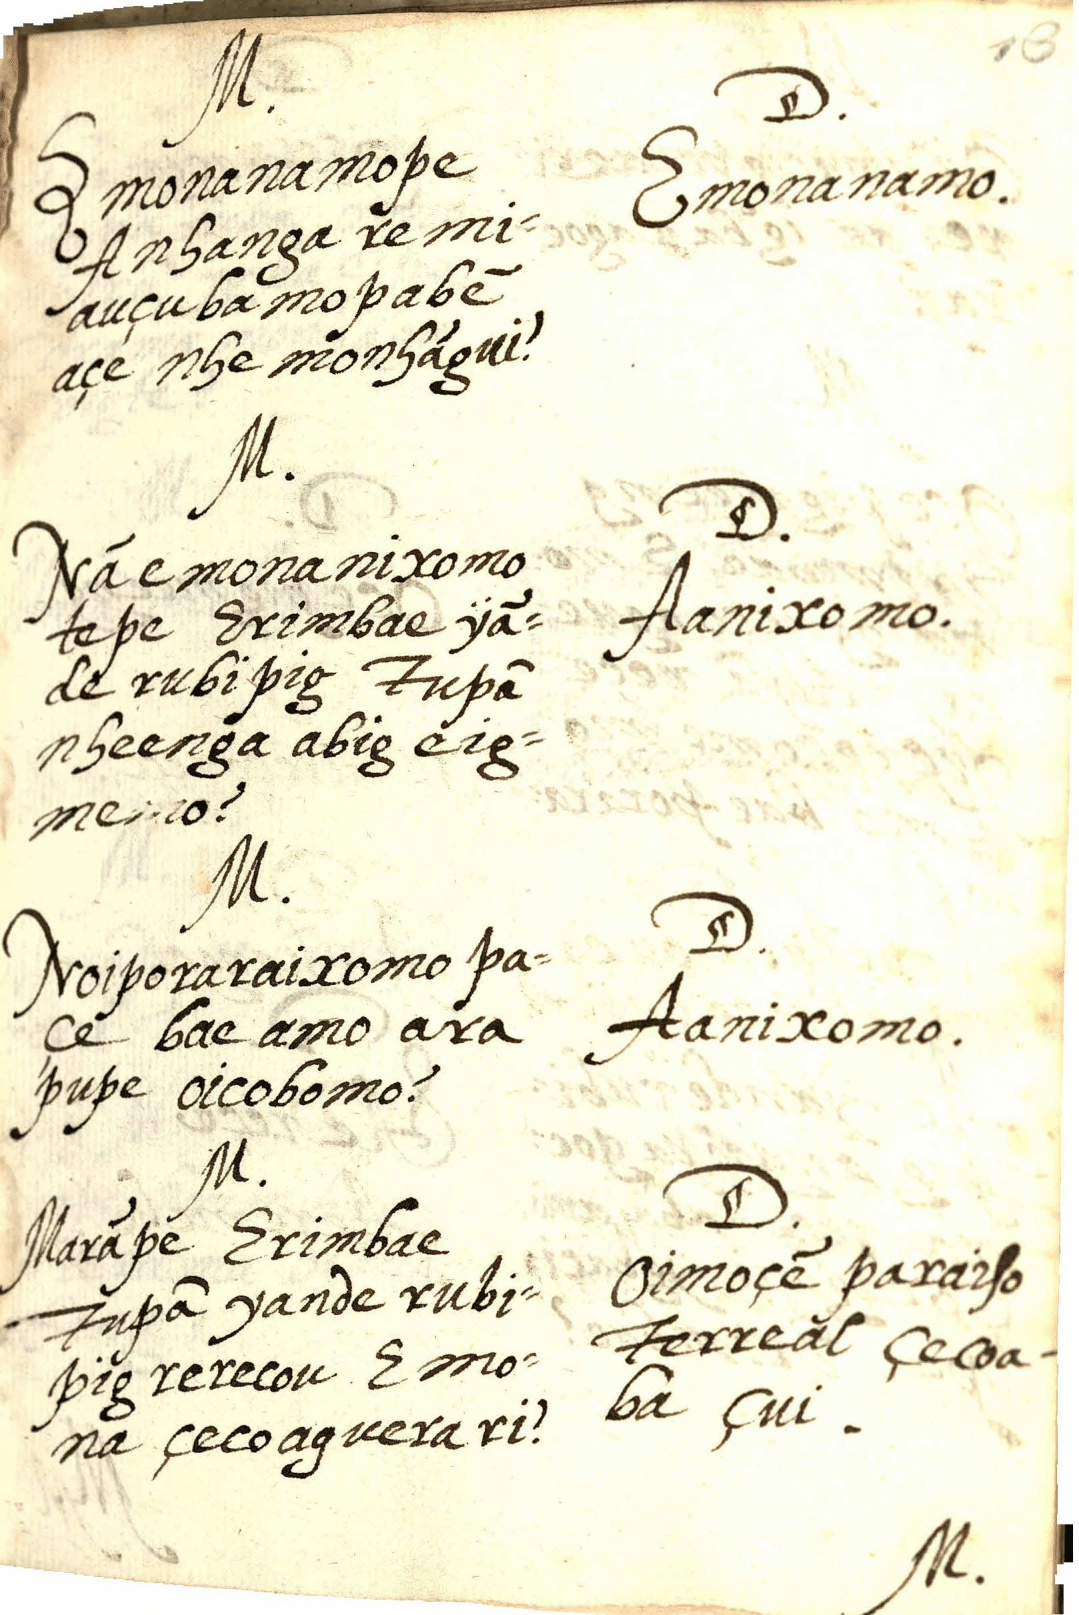 18
M.
Emonanamope
Anhanga remi=
auçubamo pabẽ
açe nhe monhágui?
D.
Emonanamo.
M.
Nã emonanixomo
tepe Erimbae ÿã=
de rubipig Tupã
nheenga abig eig=
memo?
D.
Aanixomo.
M.
Noiporaraixomo pa=
ce bae amo ara
pupe oicobomo?
D.
Aanixomo.
M.
Marãpe Erimbae
Tupã yande rubi=
pig rerecou Emo=
na çecoaguera ri?
D.
Oimoçẽ paraiso
Terreal çecoa-
ba çui.
M.